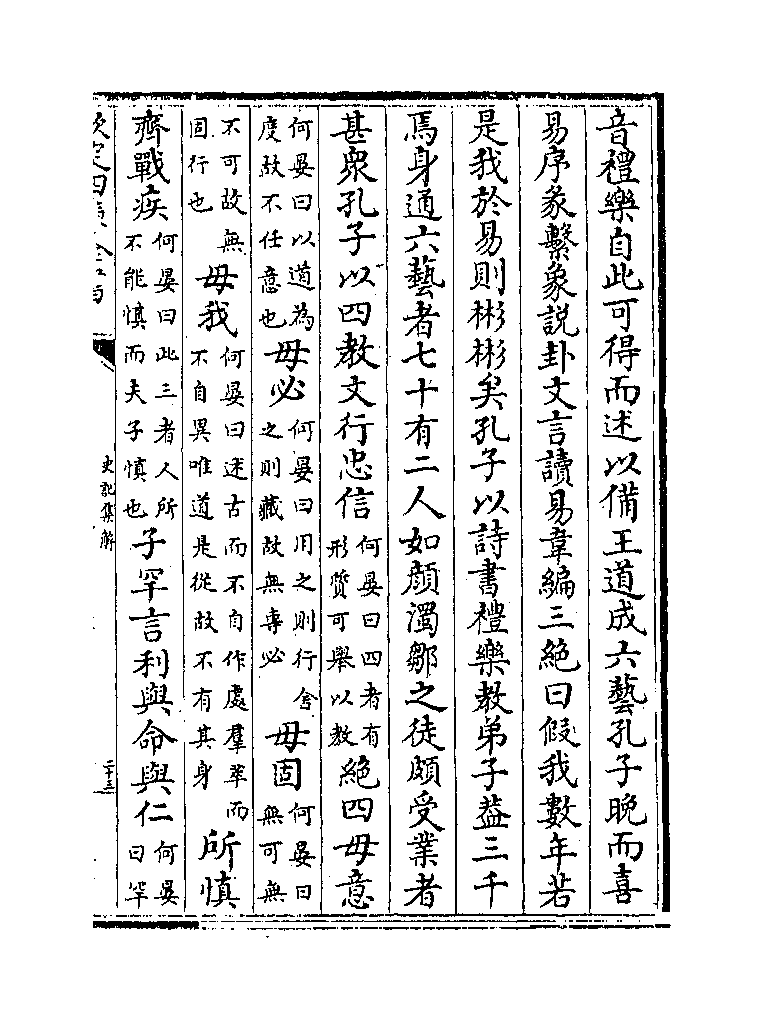 音禮樂自此可得而述以備王道成六藝孔子晚而喜
易序彖繫象說卦文言讀易韋編三絕曰假我數年若
是我於易則彬彬矣孔子以詩書禮樂教弟子蓋三千
焉身通六藝者七十有二人如顔濁鄒之徒頗受業者
甚衆孔子以四教文行忠信何晏曰四者有形質可舉以教絕四毋意
何晏曰以道為度故不任意也毋必何晏曰用之則行舍之則藏故無專必毋固何晏曰無可無
不可故無固行也毋我何晏曰述古而不自作處羣萃而不自異唯道是從故不有其身所慎
齊戰疾何晏曰此三者人所不能慎而夫子慎也子罕言利與命與仁何晏曰罕
欽定四庫全書
史記集解
二十三